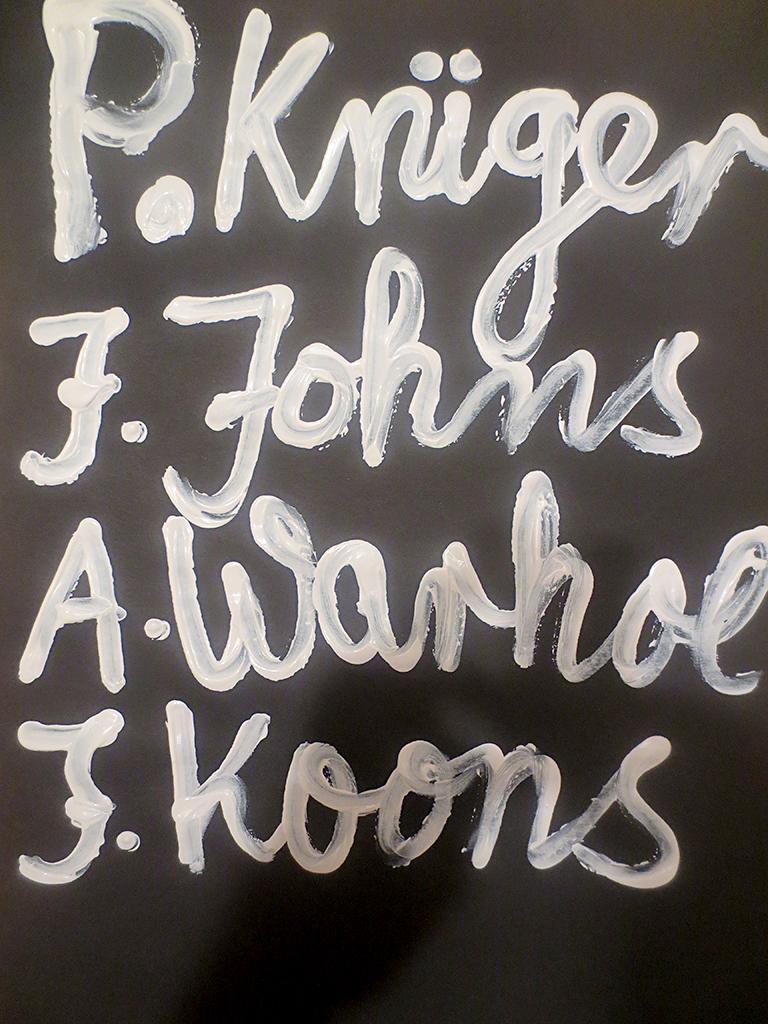 P. Krüger
J. Johns
A. Warhol
J. Koons